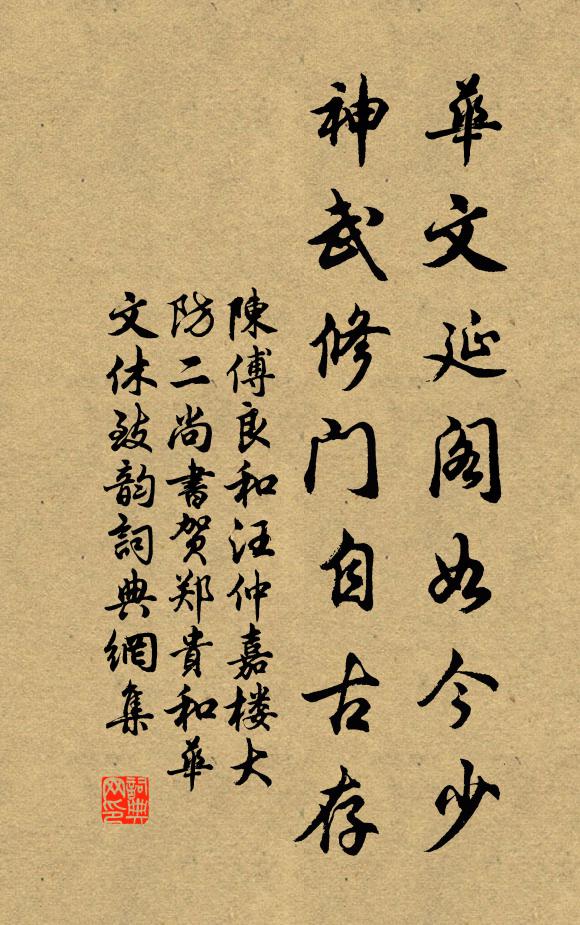 華文延阁如今少
神武修门自古存
陳傅良和汪仲嘉楼大
防二尚書贺郑貴和華
文休致韵詞典網集
詞典网印